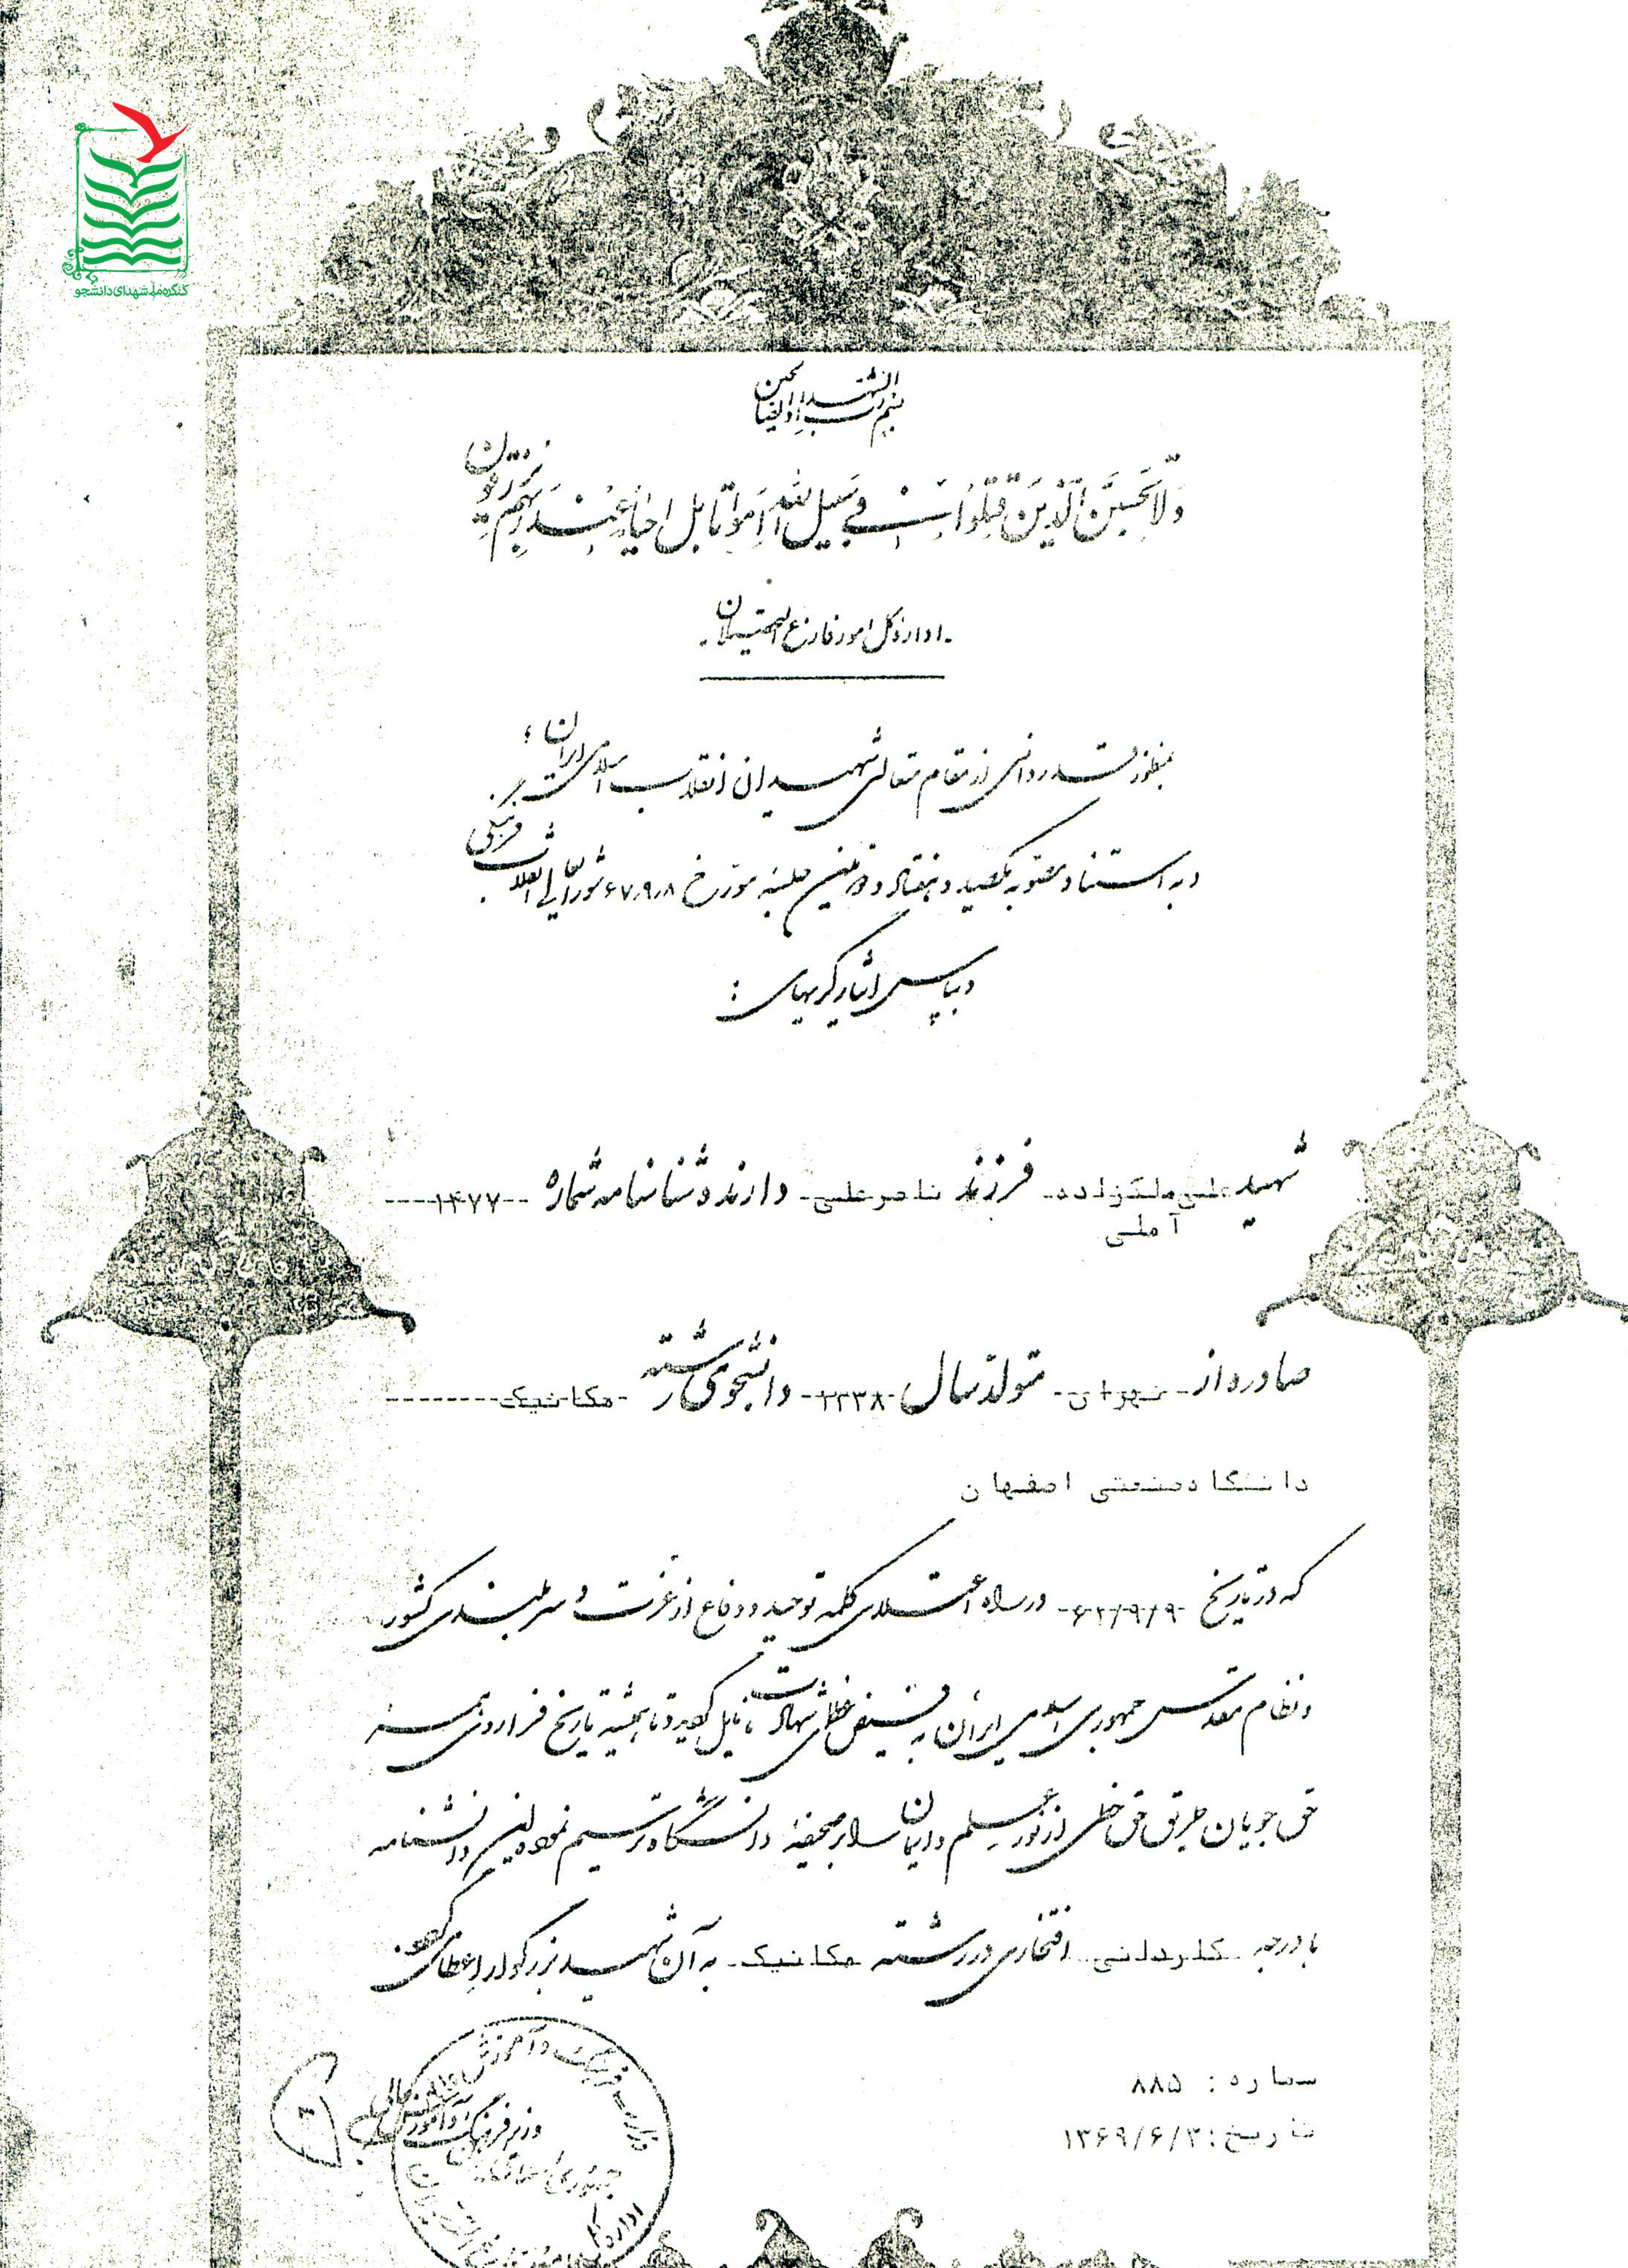 کنگره ملی شهدای دانشجو
بسم رب الشهداء و الصالحین
وَلا تَحسَبَنَّ الَّذینَ قُتِلوا فی سَبیلِ اللهِ اَمواتاً بَل اَحیاءٌ عِندَ رَبِّهِم یُرزَقون
- اداره کل امور فارغ التحصیلان -
بمنظور قدردانی از مقام متعالی شهیدان انقلاب اسلامی ایران ؛
و به استناد مصوبه یکصد و هفتاد و نهمین جلسه مورخ ۶۷٫۹٫۸ شورای عالی انقلاب فرهنگی
و بپاس ایثارگریهای :
شهید علی ملکزاده آملی فرزند ناصرعلی دارنده شناسنامه شماره ۱۴۷۷
صادره از تهران متولد سال ۱۳۳۸ دانشجوی رشته مکانیک
دانشگاه صنعتی اصفهان
که در تاریخ ۶۲/۹/۹ در راه اعتلای کلمه توحید و دفاع از عزت و سربلندی کشور
و نظام مقدس جمهوری اسلامی ایران به فیض عظمای شهادت نایل گردید و تا همیشه تاریخ فراروی همه
حق جویان طریق حق خطی از نور علم و ایمان را بر صحیفه دانشگاه ترسیم نموده این دانشنامه
با درجه کاردانی افتخاری در رشته مکانیک به آن شهید بزرگوار اعطا می گردد.
شماره : ۸۸۵
تاریخ : ۱۳۶۹/۶/۳
وزیر فرهنگ و آموزش عالی
وزارت فرهنگ و آموزش عالی
جمهوری اسلامی ایران
اداره کل